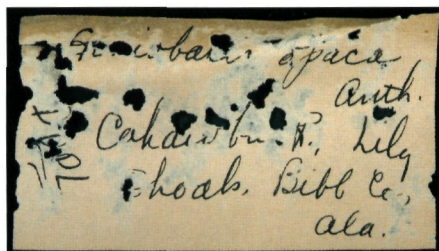 Goniobasis opaca
Anth.
Cahawba R., Lily
Shoals, Bibb Co.,
Ala.